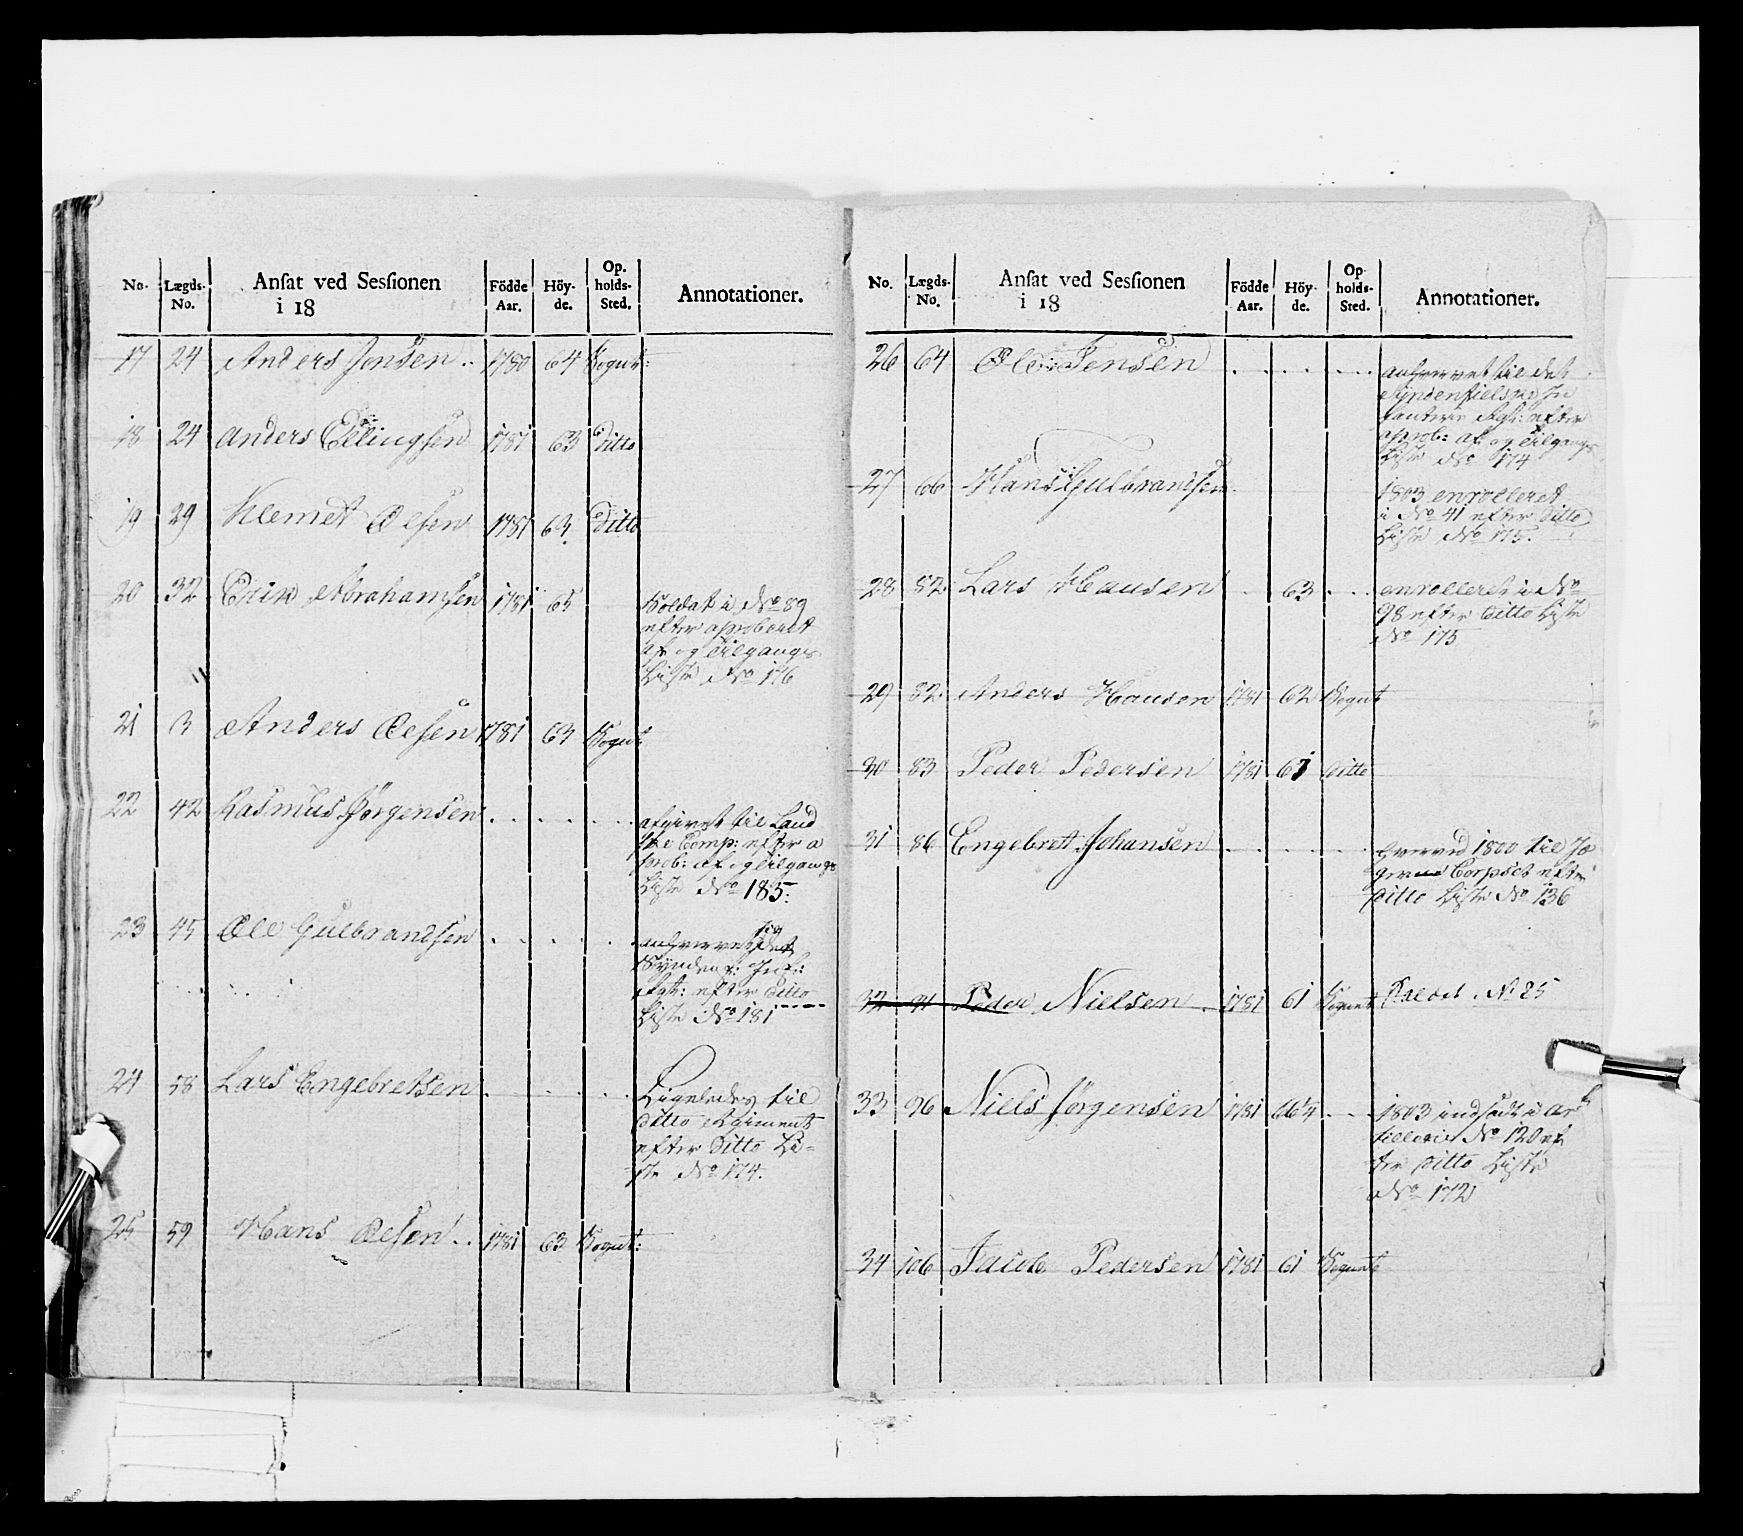 No. Lægds-No. Ansat ved Sessionen i 18 Födde Aar. Höy-de. Op-holds-Sted. Annotationer.
17 24 Anders Jensen .. 1780 64 Sognet:
18 24 Anders Ellingsen 1781 63 Ditto
19 29 Klemet Olsen 1781 64 Ditto
20 32 Erik Abrahamsen 1781 65
Soldat i No 89
efter aproberet
af og Tilgangs
Liste No 176
21 3 Anders Olsen 1781 64 Sognet
22 42 Rasmus Jörgensen . . . . . .
afgivet til Land
Comp: efter a
prob: af og Tilgangs
Liste No 185.
23 45 Ole Gulbrandsen . . . . .
anhvervet sig det
Syndenf: Inf:
Rgt: efter Ditto
Liste No 181
24 58 Lars Engebretsen . . . . .
Ligeledes til
Ditto Regiment
efter Ditto Li-
ste No 174.
25 59 Hans Olsen .. 1781 63 Sognet:
No. Lægds-No. Ansat ved Sessionen i 18 Födde Aar. Höy-de. Op-holds-Sted. Annotationer.
26 64 Ole Jensen . . . . . .
anhvervet til det
Syndenfielske In
fanterie Rgt: efter
aprob: af og Tilgangs
Liste No 174
27 66 Hans Gulbrandsen
1803 enrolleret
i No 41 efter Ditto
Liste No 175.
28 82 Lars Hansen 63 . . .
enrolleret i No
98 efter Ditto Liste
No 175
29 82 Anders Hansen 1781 62 Sognet
30 83 Peder Pedersen 1781 61 Ditto
31 86 Engebret Johansen . . . . . .
1800 til Jæ
ger Corpset efter
Ditto Liste No 136
32 91 Peder Nielsen . 1781 61 Sognet No 25
33 96 Niels Jörgensen 1781 66¼ . . .
1803 indsadt i Ar
tillerie No 120 ef
ter Ditto Liste
No 172
34 106 Jacob Pedersen 1781 61 Sognet